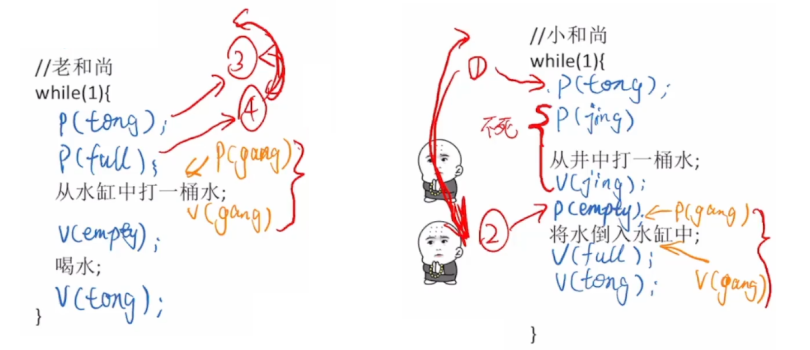 //老和尚
while(1){
P(tong);
③
P(full);
④
P(gang)
从水缸中打一桶水;
V(gang)
V(empty);
喝水;
V(tong);
}
//小和尚
while(1){
①
P(tong);
不死
P(jing)
从井中打一桶水;
V(jing);
②
P(empty);
P(gang)
将水倒入水缸中;
V(full);
V(gang)
V(tong);
}